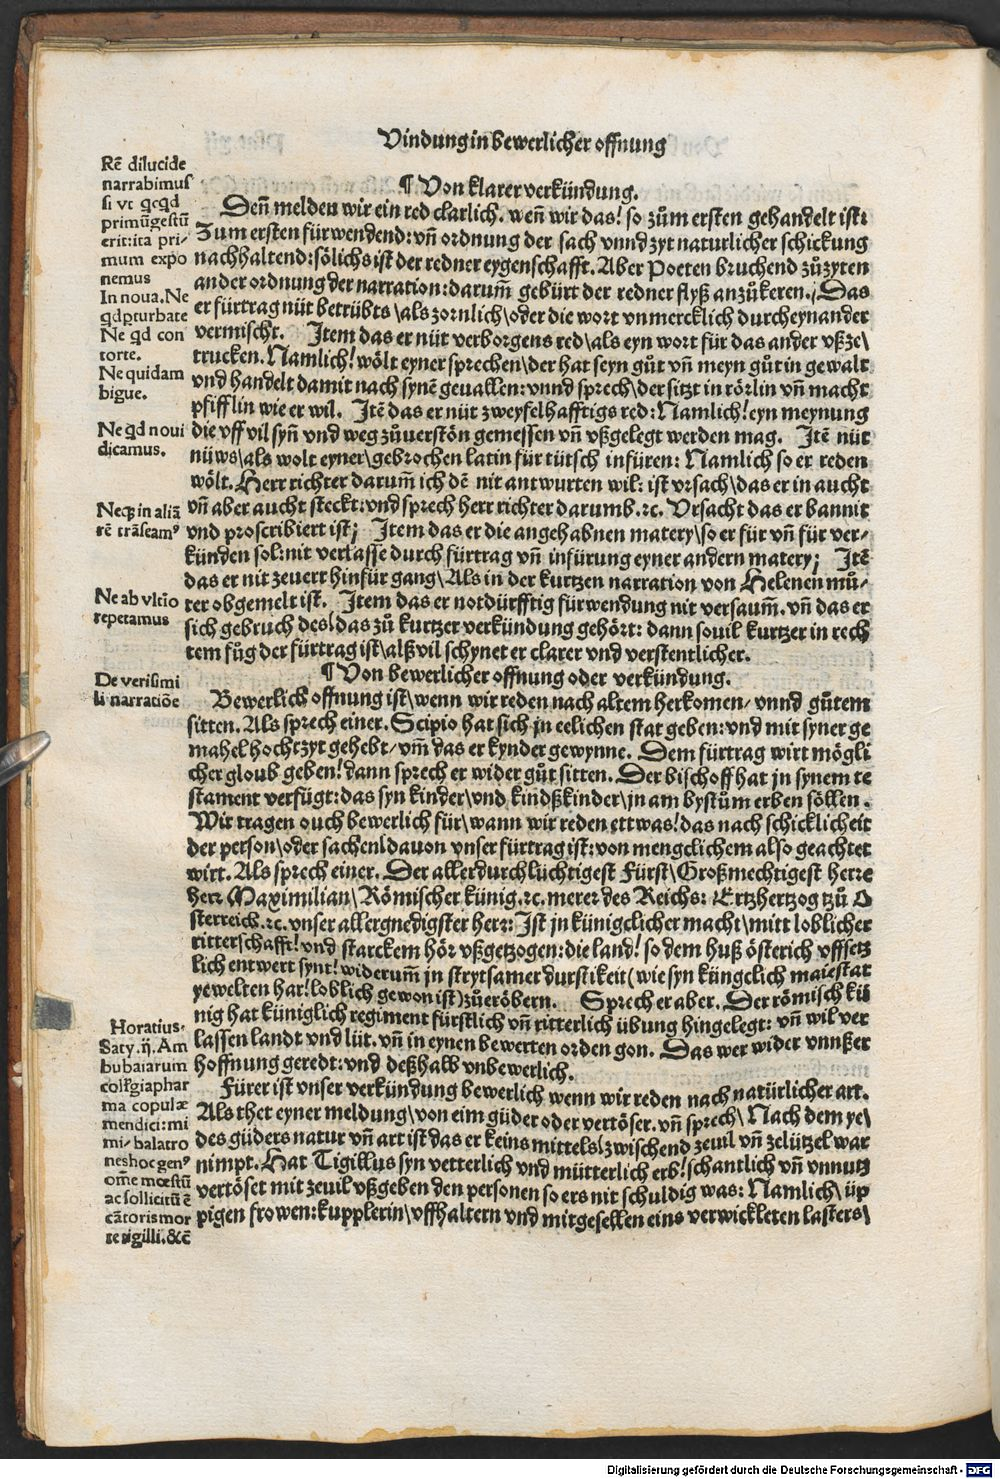 Vindung in bewerlicher offnung
Rē dilucide
narrabimus
si vt qcqd
primūgestū
erit: ita pri-
mum expo
nemus
In noua. Ne
qdpturbate
Ne qd con
torte.
Ne quidam
bigue.
Ne qd noui
dicamus.
Necz in aliā
rē trāseamꝰ
Ne ab vltio
repetamus
De verisimi
li narratiōe
Horatius.
Saty. ij. Am
bubaiarum
collegia phar
ma copulæ
mendici: mi
mi balatro
nes hoc genꝰ
om̄e mœstū
ac sollicitū ē
cātoris mor
te tigilli. &c̄
¶ Von klarer verkündung.
Deñ melden wir ein red clarlich. weñ wir das! so zům ersten gehandelt ist:
Zum ersten fürwendend: vñ ordnung der sach vnnd zyt naturlicher schickung
nachhaltend: sölichs ist der redner eygenschafft. Aber Poeten bruchend zůzyten
an der ordnung der narration: darum̄ gebürt der redner flyß anzůkeren. Das
er fürtrag nüt betrübts \ als zornlich \ oder die wort vnmercklich durcheynander
vermischt. Item das er nüt verborgens red \ als eyn wort für das ander vßze \
trucken. Namlich! wölt eyner sprechen \ der hat seyn gůt vñ meyn gůt in gewalt
vnd handelt damit nach synē geuallen: vnnd sprech \ der sitzt in rörlin vñ macht
pfifflin wie er wil. Itē das er nüt zweyfelhafftigs red: Namlich! eyn meynung
die vff vil syñ vnd weg zůuerstön gemessen vñ vßgelegt werden mag. Itē nüt
nüws \ als wolt eyner \ gebrochen latin für tütsch infüren: Namlich so er reden
wölt. Herr richter darum̄ ich dē nit antwurten wil: ist vrsach \ das er in aucht
vñ aber aucht steckt: vnd sprech herr richter darumb. ꝛc. Vrsacht das er bannit
vnd proscribiert ist; Item das er die angehabnen matery \ so er für vñ für ver-
künden sol: nit verlasse durch fürtrag vñ infürung eyner andern matery; Itē
das er nit zeuerr hinfür gang \ Als in der kurtzen narration von Helenen mů-
ter obgemelt ist. Item das er notdürfftig fürwendung nit versaum̄. vñ das er
sich gebruch des \ das zů kurtzer verkündung gehört: dann souil kurtzer in rech
tem fůg der fürtrag ist \ alß vil schynet er clarer vnd verstentlicher.
¶ Von bewerlicher offnung oder verkündung.
Bewerlich offnung ist \ wenn wir reden nach altem herkomen / vnnd gůtem
sitten. Als sprech einer. Scipio hat sich jn eelichen stat geben: vnd mit syner ge
mahel hochtzyt gehebt / vm̄ das er kynder gewynne. Dem fürtrag wirt mögli
cher gloub geben! dann sprech er wider gůt sitten. Der bischoff hat jn synem te
stament verfügt: das syn kinder \ vnd kindßkinder \ jn am bystům erben söllen.
Wir tragen ouch bewerlich für \ wann wir reden ettwas! das nach schicklicheit
der person \ oder sachen \ dauon vnser fürtrag ist: von mengclichem also geachtet
wirt. Als sprech einer. Der allerdurchlüchtigest Fürst \ Großmechtigest herre
herr Maximilian \ Römischer künig. ꝛc. merer des Reichs: Ertzhertzog tzů O
sterreich. ꝛc. vnser allergnedigster herr: Ist jn künigclicher macht \ mitt loblicher
ritterschafft! vnd starckem hör vßgetzogen: die land! so dem huß österich vffsetz
lich entwert synt! widerum̄ jn strytsamer durstikeit (wie syn küngclich maiestat
yewelten har! loblich gewon ist) zůeröbern. Sprech er aber. Der römisch kü
nig hat küniglich regiment fürstlich vñ ritterlich übung hingelegt: vñ wil ver
lassen landt vnd lüt. vñ in eynen bewerten orden gon. Das wer wider vnnßer
hoffnung geredt: vnd deßhalb vnbewerlich.
Fürer ist vnser verkündung bewerlich wenn wir reden nach natürlicher art.
Als thet eyner meldung \ von eim güder oder vertöser. vñ sprech \ Nach dem ye \
des güders natur vñ art ist das er keins mittels \ zwischend zeuil vñ zelützel war
nimpt. Hat Tigillus syn vetterlich vnd mütterlich erb! schantlich vñ vnnutz
vertöset mit zeuil vßgeben den personen so ers nit schuldig was: Namlich \ üp
pigen frowen: kupplerin \ vffhaltern vnd mitgesellen eins verwickleten lasters \
Digitalisierung gefördert durch die Deutsche Forschungsgemeinschaft - DFG